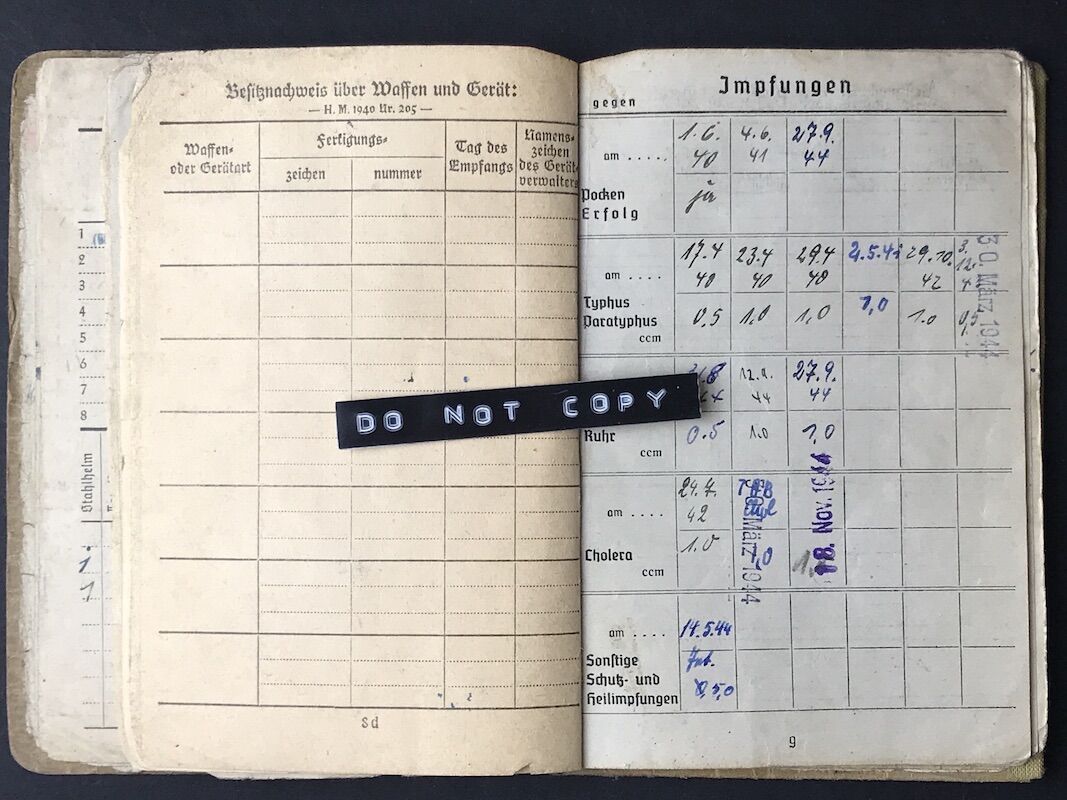 Besitznachweis über Waffen und Gerät:
— H. M. 1940 Nr. 205 —
Waffen- oder Gerätart
Fertigungs-
zeichen
nummer
Tag des Empfangs
Namens- zeichen des Gerät- verwalters
1
2
3
4
5
6
7
8
Stahlhelm
1
1
8d
DO NOT COPY
Impfungen
gegen
1.6. 4.6. 27.9.
am ..... 40 41 44
Pocken ja
Erfolg
17.4 23.4 29.4 29.10. 3.
12.
am .... 40 40 40 42 4
30. März 1944
Typhus 1,0
Paratyphus 0,5 1,0 1,0 1.0 0,5
ccm
12.11. 27.9.
44 44
Ruhr 0.5 1.0 1,0
ccm
24.7. TAB
am .... 42
März 1944
18. Nov. 194
Cholera 1.0 1,0
ccm
am .... 14.5.44
Sonstige
Schutz- und
Heilimpfungen 5,0
9